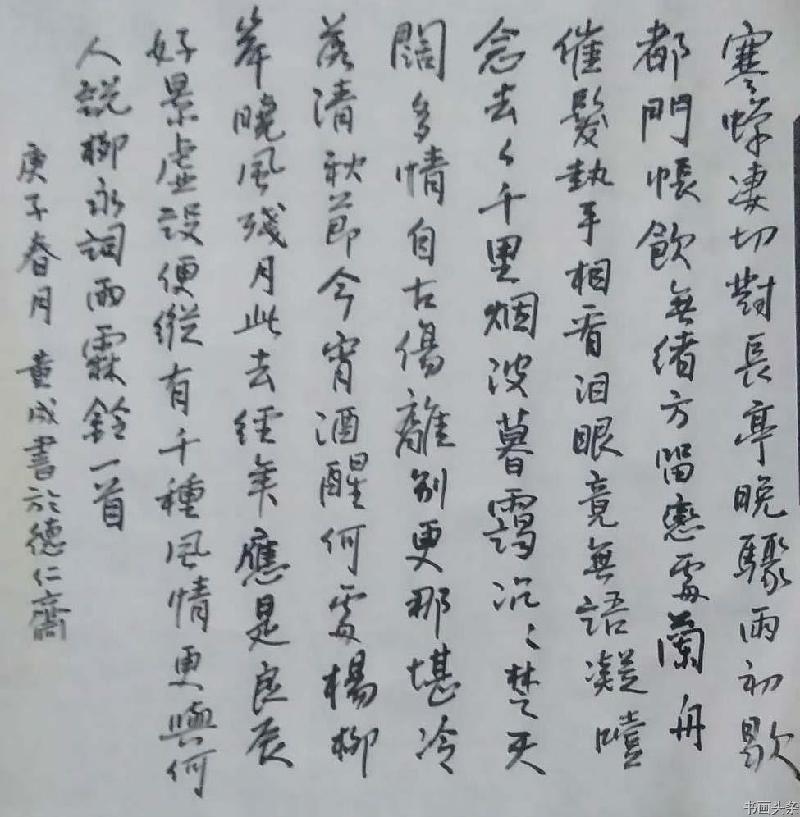 寒蟬凄切對長亭晚驟雨初歇
都門帳飲無緒方留戀處蘭舟
催發執手相看泪眼竟無語凝噎
念去々千里烟波暮靄沉々楚天
闊多情自古傷離别更那堪冷
落清秋節今宵酒醒何處楊柳
岸曉風殘月此去經年應是良辰
好景虚設便縱有千種風情更與何
人説柳永詞雨霖鈴一首
庚子春月董成書於德仁齋
书画头条